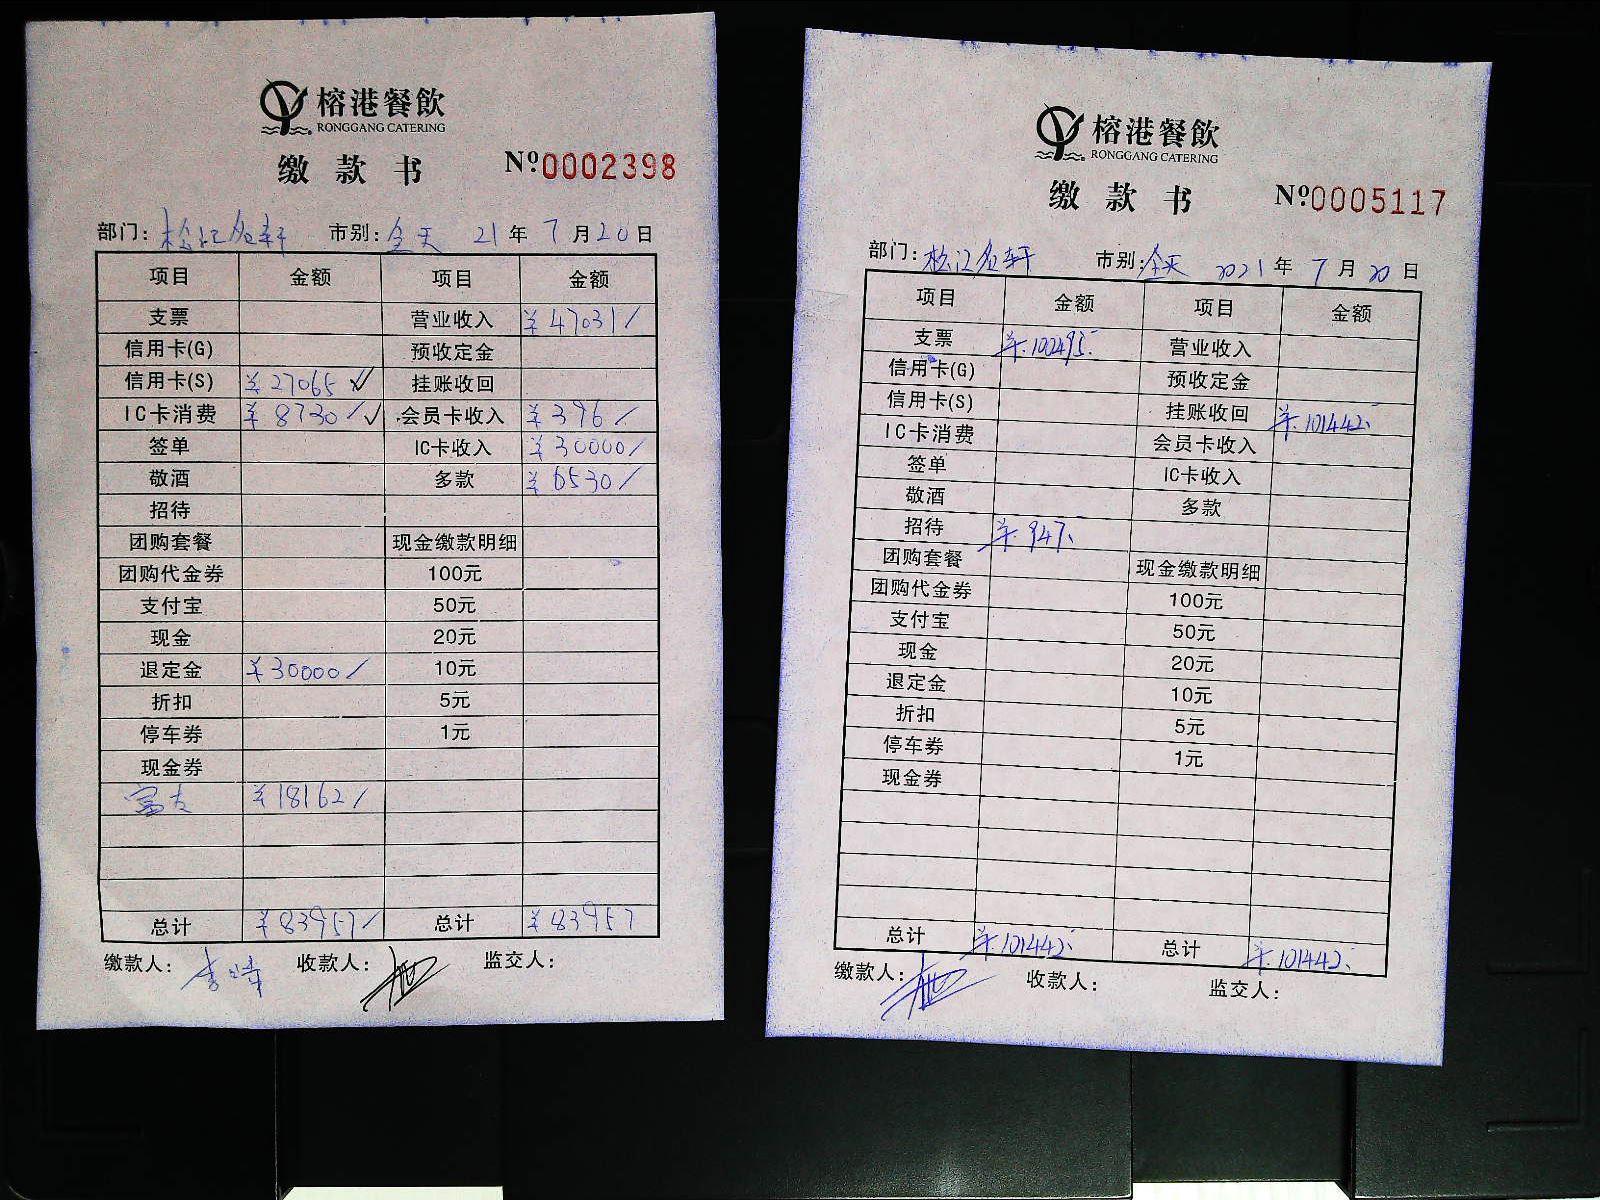 榕港餐飲
RONGGANG CATERING
缴款书 Nº0002398
部门: 松江名轩 市别: 全天 21年7月20日
项目 金额 项目 金额
支票 营业收入 ¥47031/
信用卡(G) 预收定金
信用卡(S) ¥27065 ✓ 挂账收回
IC卡消费 ¥8730/✓ 会员卡收入 ¥396/
签单 IC卡收入 ¥30000/
敬酒 多款 ¥6530/
招待
团购套餐 现金缴款明细
团购代金券 100元
支付宝 50元
现金 20元
退定金 ¥30000/ 10元
折扣 5元
停车券 1元
现金券
富友 ¥18162/
总计 ¥83957/ 总计 ¥83957
缴款人: 收款人: 监交人:
榕港餐飲
RONGGANG CATERING
缴款书 Nº0005117
部门: 松江名轩 市别: 全天 2021年7月20日
项目 金额 项目 金额
支票 ¥100495. 营业收入
信用卡(G) 预收定金
信用卡(S) 挂账收回 ¥101442.
IC卡消费 会员卡收入
签单 IC卡收入
敬酒 多款
招待 ¥947.
团购套餐 现金缴款明细
团购代金券 100元
支付宝 50元
现金 20元
退定金 10元
折扣 5元
停车券 1元
现金券
总计 ¥101442. 总计 ¥101442.
缴款人: 收款人: 监交人: